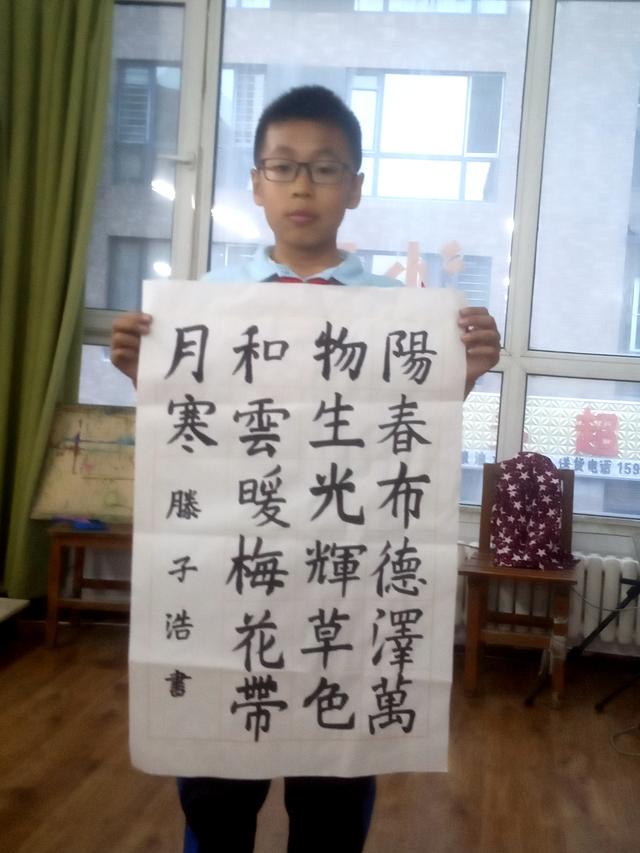 陽春布德澤萬
物生光輝草色
和雲暖梅花帶
月寒
滕子浩書
超
送货电话 159